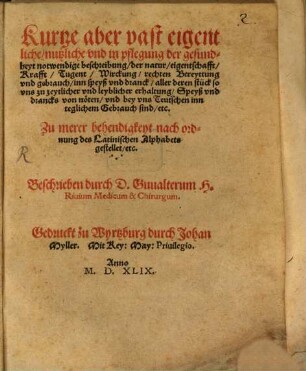 2.
Kurtze aber vast eigent
liche/nutzliche vnd in pflegung der gesund-
heyt notwendige beschreibung/der natur/eigenschafft/
Krafft/Tugent/Wirckung/rechten Bereyttung
vnd gebrauch/inn speyß vnd dranck/aller deren stück so
vns zu zeytlicher vnd leyblicher erhaltung/Speyß vnd
drancks von nöten/vnd bey vns Teutschen inn
teglichem Gebrauch sind/etc.
Zu merer behendigkeyt nach ord-
nung des Latinischen Alphabets
gestellet/etc.
Beschrieben durch D. Gualterum H.
Riuium Medicum & Chirurgum.
Gedruckt zů Wyrtzburg durch Johan
Myller. Mit Key: May: Priuilegio.
Anno
M. D. XLIX.